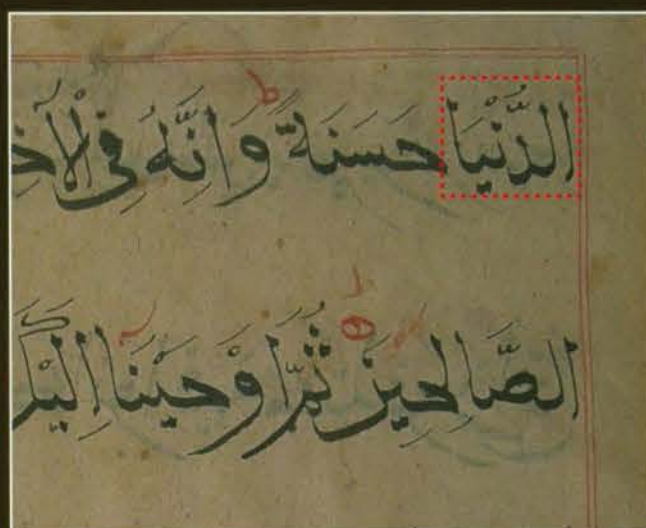 الدُّنْيَا حَسَنَةً ۖ وَاِنَّهُ فِى الْاَخِ
الصَّالِحِيْنَ ثُمَّ اَوْحَيْنَا اِلَيْكَ